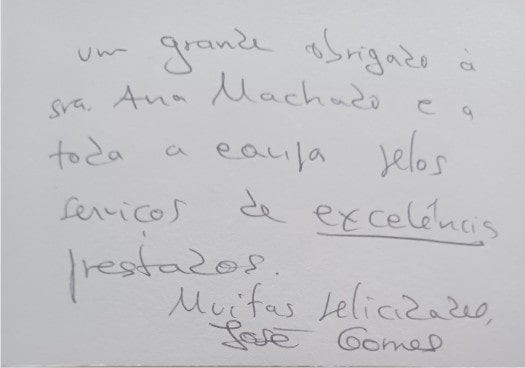 um grande obrigado à
sra. Ana Machado e a
toda a equipa pelos
serviços de excelência
prestados.
Muitas felicidades,
José Gomes